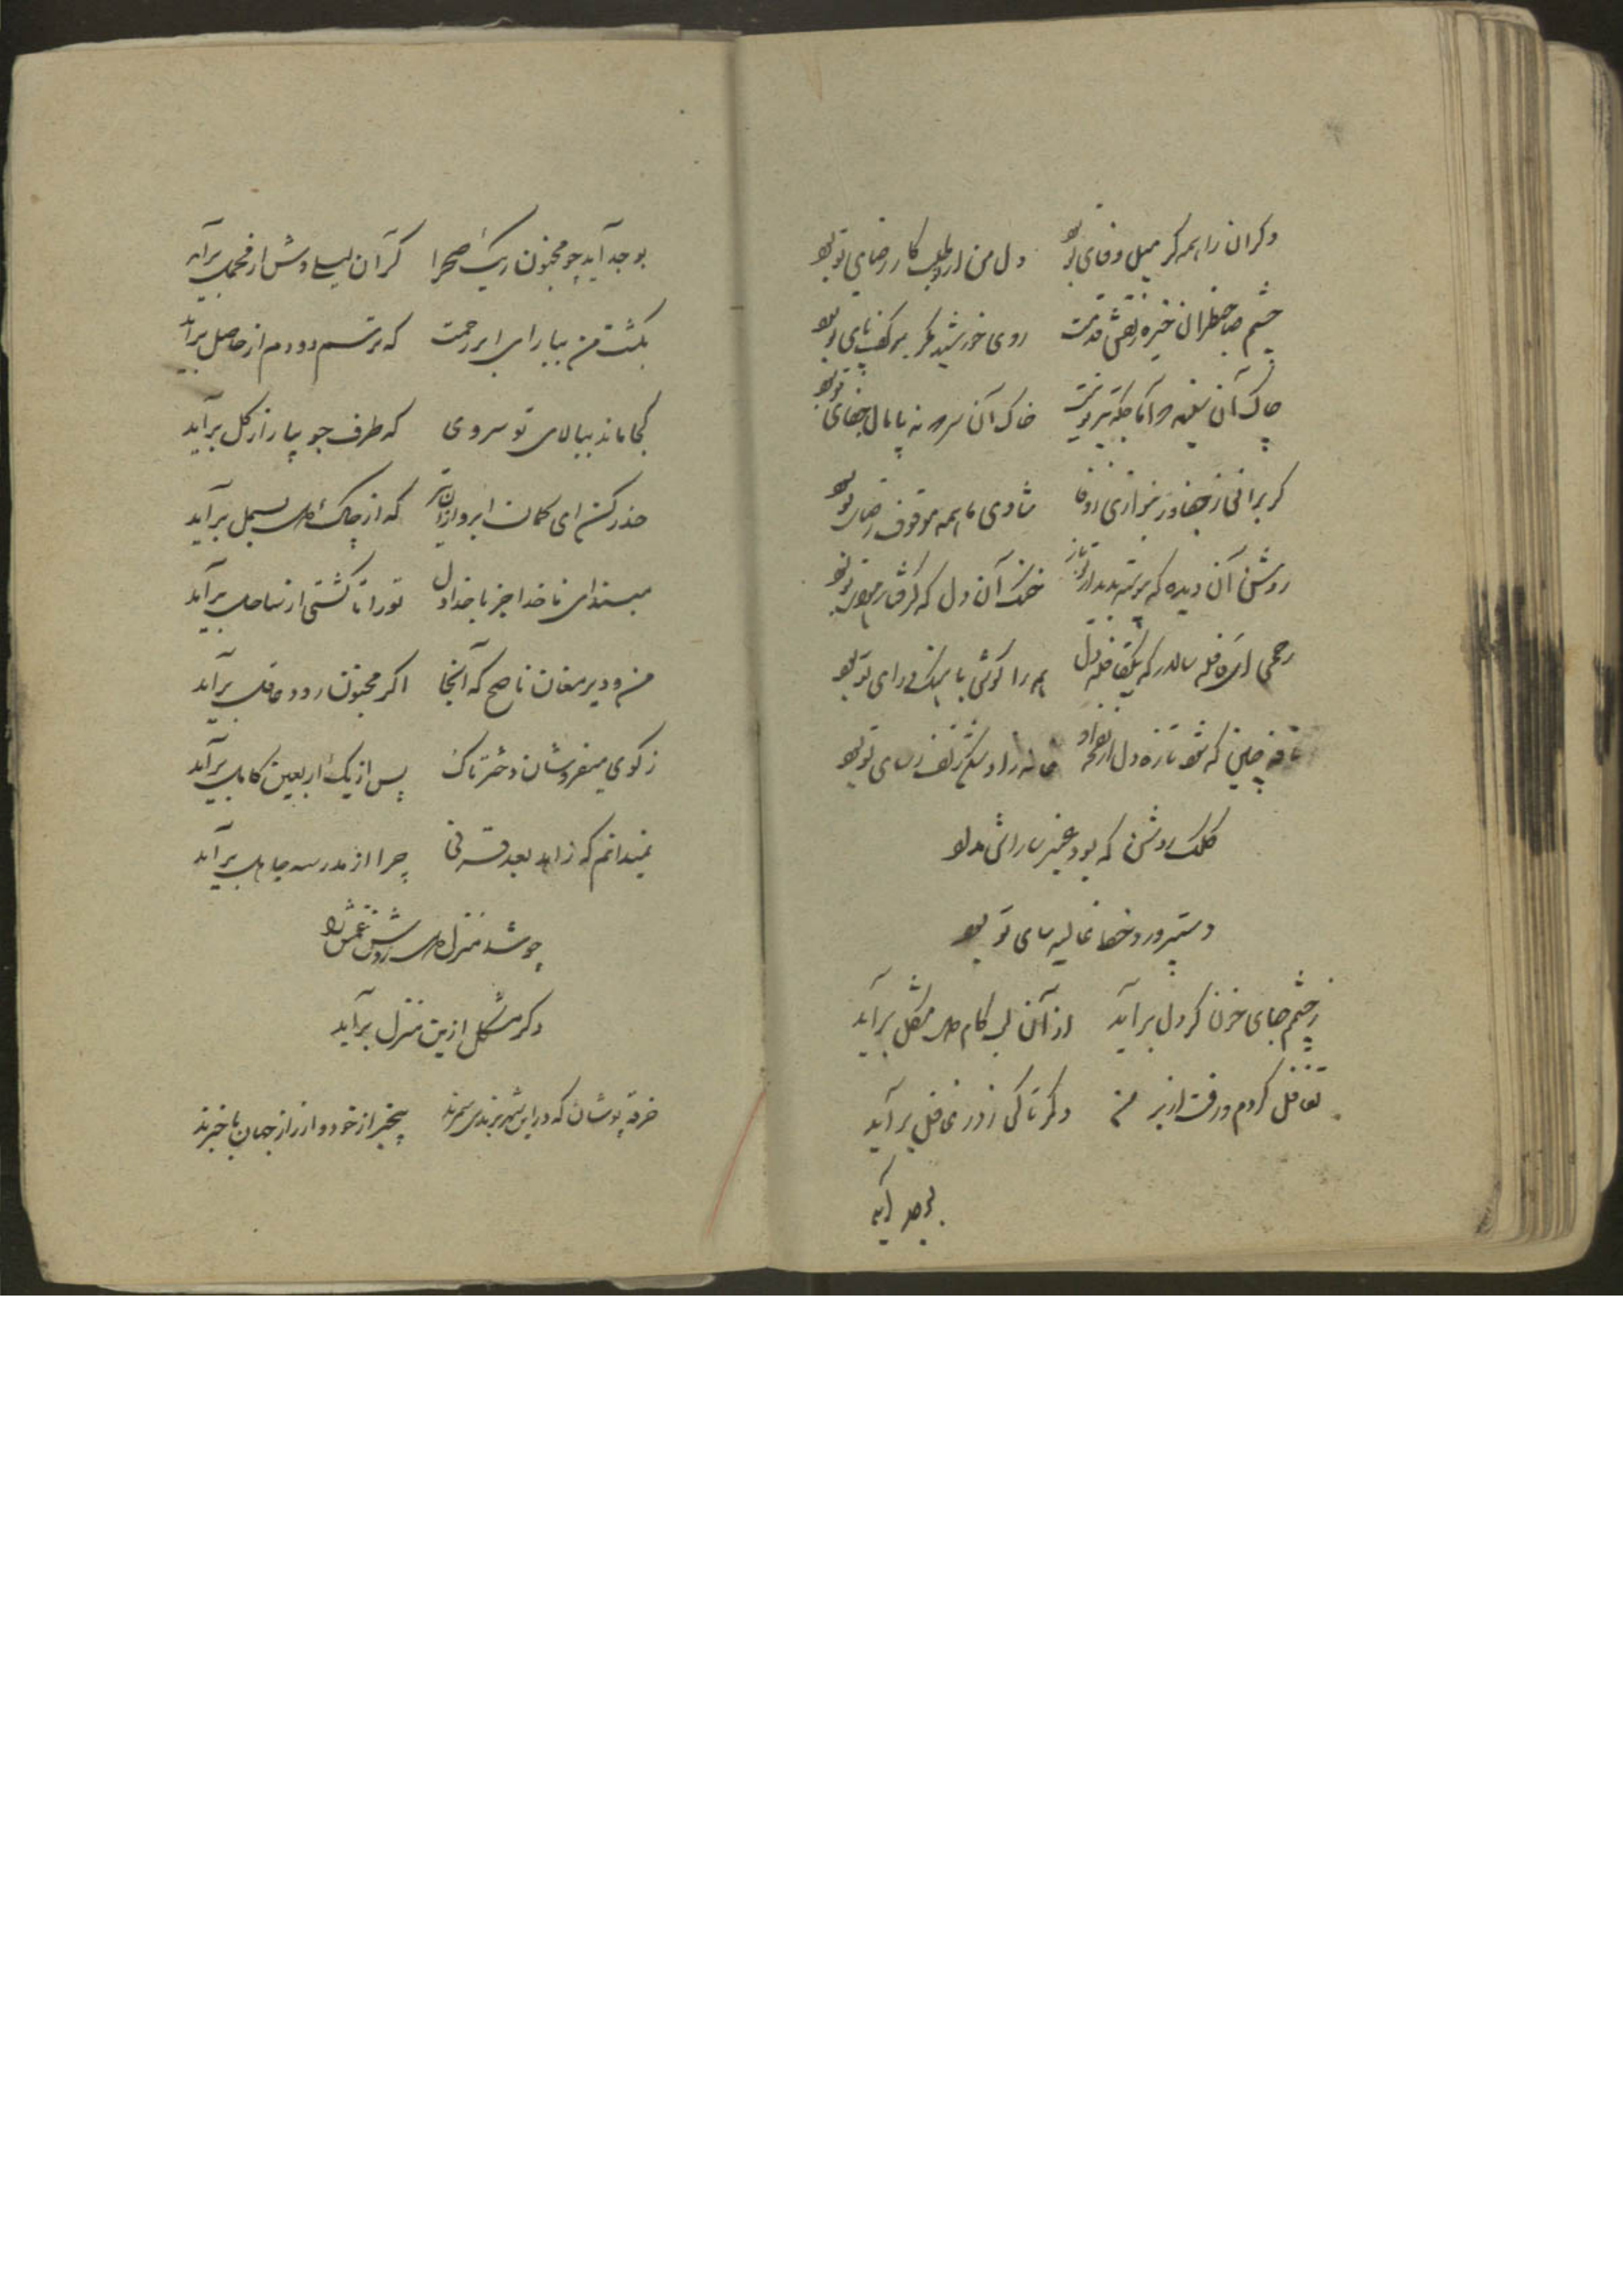 دکران را همه کر میل وفای تو بود دل من در طلب کار رضای تو بود
چشم صاحبنظران خیره نقش قدمت روی خورشید مگر بر کف پای تو بود
چاک آن سینه نه آماجگه تیر تو نیست خاک آن سر نه پامال جفای تو بود
کر برانی ز جفا ور بنوازی ز وفا شادی ما همه موقوف رضای تو بود
روشن آن دیده که پیوسته بدیدار تو باز خنک آن دل که گرفتار تو بود
رحمی ای قافله سالار که یک قافله دل همره کوئی بانک درای تو بود
نافه چین که شود تازه دل از نفحه او زلف رسای تو بود
کلک روشن که بود عنبر سارا
دستپرورد خط غالیه سای تو بود
ز چشم جای خون کر دل برآید از آن لب کام دل مشکل برآید
تغافل کردم و رفت از بر من دکر تا کی ز در غافل برآید
بوجد آید
بوجد آید چو مجنون ریک صحرا کر آن لیلی وش از محمل برآید
بکشت من ببار ای ابر رحمت که ترسم دودم از حاصل برآید
کجا ماند ببالای تو سروی که طرف جویبار از کل برآید
حذر کن ای کمان ابرو از آن تیر که از چاک دل بسمل برآید
مبند ای ناخدا جز با خدا دل تو را تا کشتی از ساحل برآید
من و دیر مغان ناصح که آنجا اکر مجنون رود عاقل برآید
ز کوی میفروشان دختر تاک پس از یک اربعین کامل برآید
نمیدانم که زاهد بعد قرنی چرا از مدرسه جاهل برآید
چو شد منزل دل روشن غمش را
دکر مشکل ازین منزل برآید
خرقه پوشان که در این شهر برندی سمرند بیخبر از خود و از راز جهان باخبرند